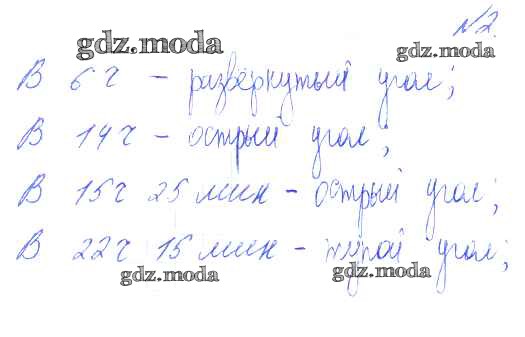 №2.
gdz.moda
gdz.moda
В 6 ч – развёрнутый угол;
В 14 ч – острый угол;
В 15 ч 25 мин – острый угол;
В 22 ч 15 мин – тупой угол;
gdz.moda
gdz.moda